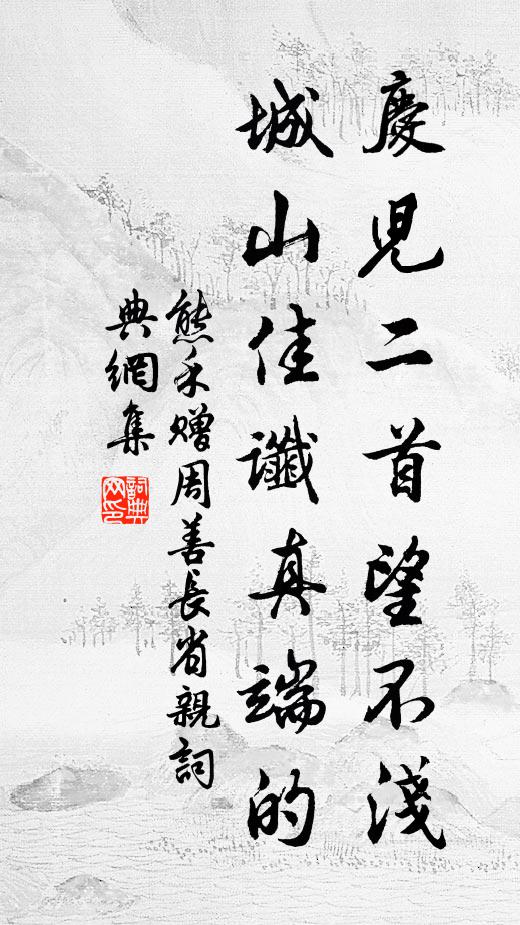 慶兒二首望不淺
城山佳讖真端的
熊禾贈周善長省親詞
典網集
詞典網印